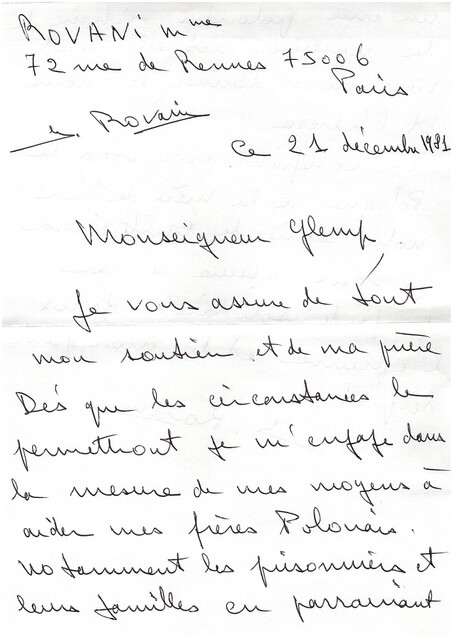 ROVANI Mme
72 rue de Rennes 75006
Paris
Rovani
Ce 21 décembre 1981
Monseigneur Glemp,
Je vous assure de tout
mon soutien et de ma prière
Dès que les circonstances le
permettront je m'engage dans
la mesure de mes moyens à
aider mes frères Polonais.
notamment les prisonniers et
leurs familles en parrainant